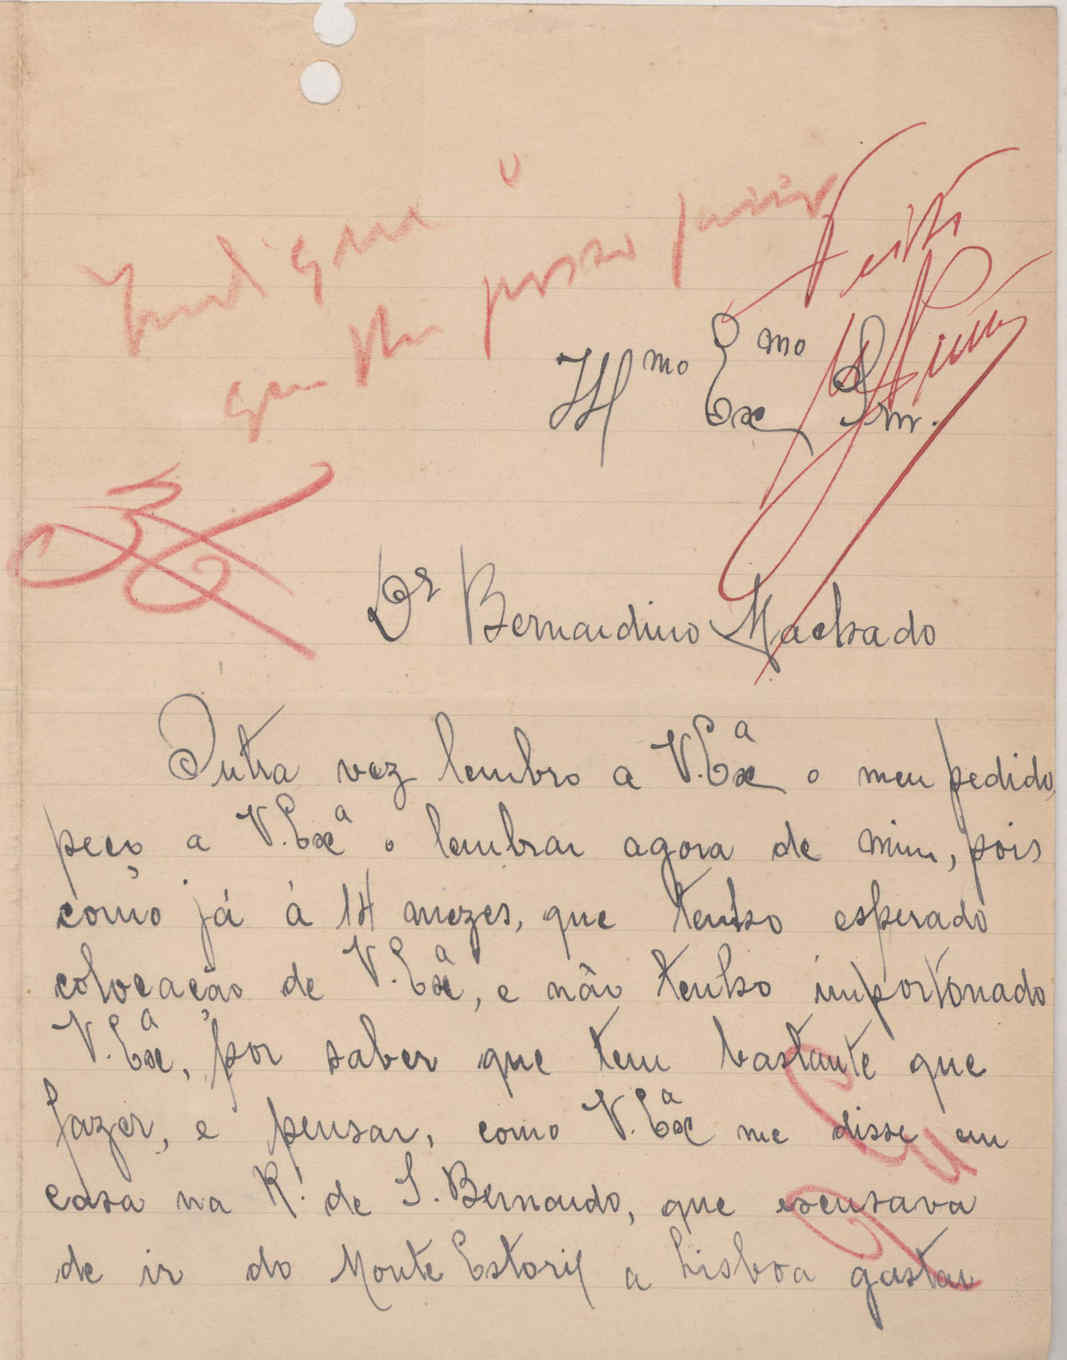 Indique
que não posso
Feito
Illmo Exmo Snr.
Dr Bernardino Machado
Outra vez lembro a V. Exa o meu pedido,
peço a V. Exa o lembrar agora de mim, pois
como já á 14 mezes, que tenho esperado
colocação de V. Exa, e não tenho importonado
V. Exa, por saber que tem bastante que
fazer, e pensar, como V. Exa me disse em
casa na R. de S. Bernardo, que escusava
de ir do Monte Estoril a Lisboa gastar